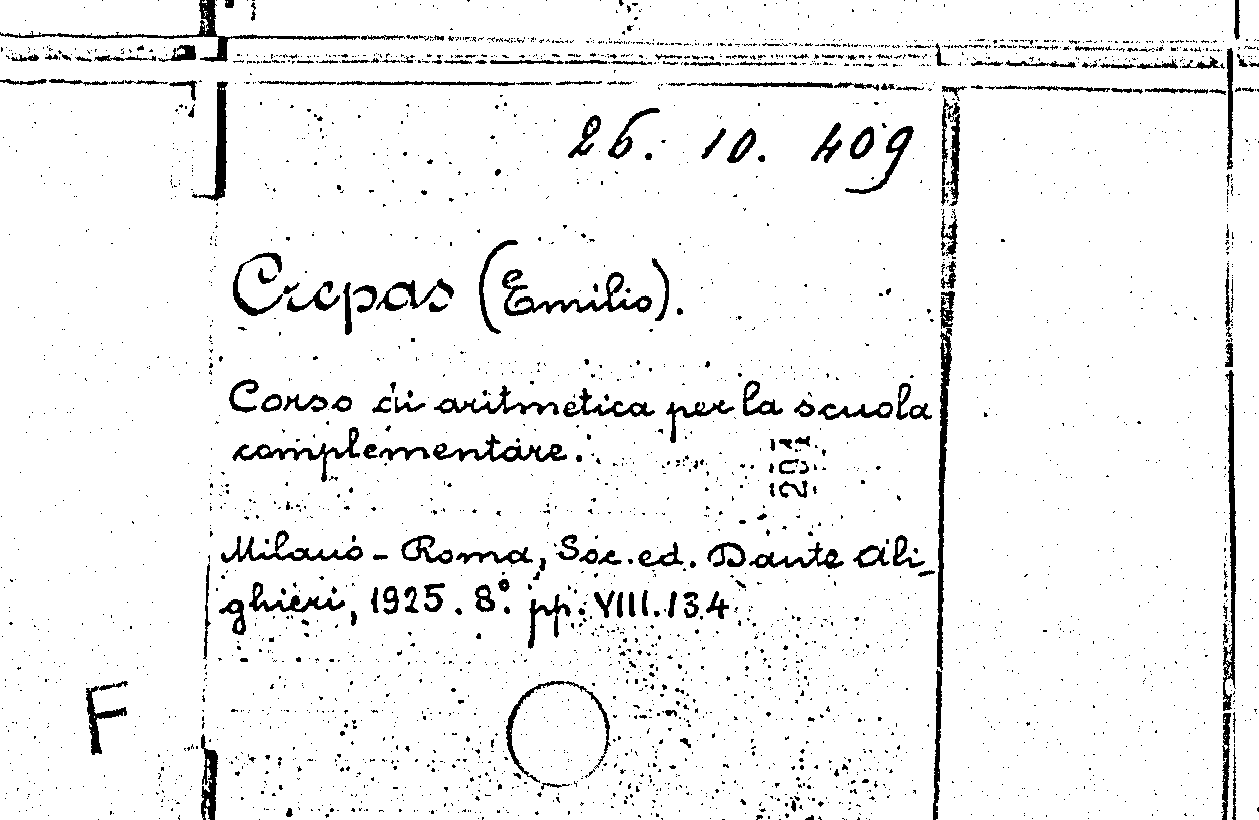 26. 10. 409
Crepas (Emilio).
Corso di aritmetica per la scuola
complementare.
Milano - Roma, Soc. ed. Dante Ali-
ghieri, 1925. 8°. pp. VIII.134
F